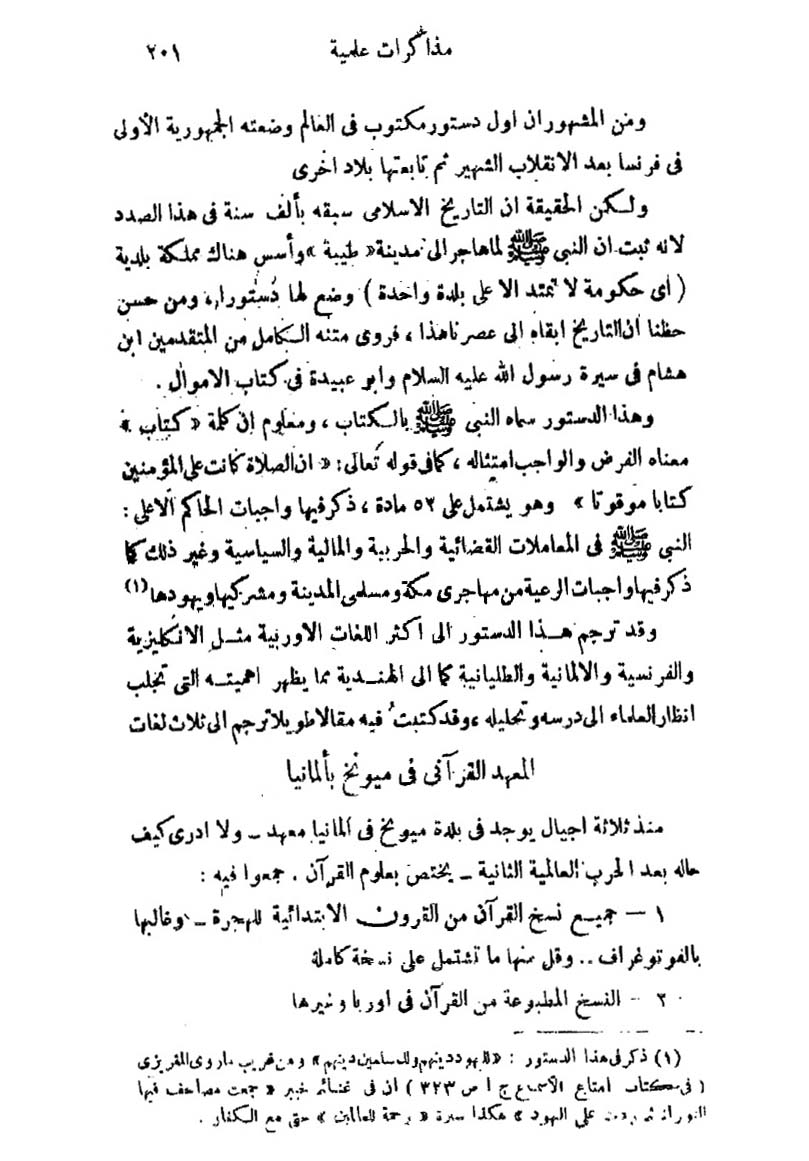 مذاكرات علمية ٢٠١
ومن المشهور ان اول دستور مكتوب فى العالم وضعته الجمهورية الأولى
فى فرنسا بعد الانقلاب الشهير ثم تابعتها بلاد اخرى
ولكن الحقيقة ان التاريخ الاسلامى سبقه بألف سنة فى هذا الصدد
لانه ثبت ان النبي ﷺ لما هاجر الى مدينة « طيبة » وأسس هناك مملكة بلدية
( اى حكومة لا تمتد الا على بلدة واحدة ) وضع لها دُستورا ، ومن حسن
حظنا ان التاريخ ابقاه الى عصرنا هذا ، فروى متنه الكامل من المتقدمين ابن
هشام فى سيرة رسول الله عليه السلام وابو عبيدة فى كتاب الاموال .
وهذا الدستور سماه النبي ﷺ بالكتاب ، ومعلوم ان كلمة « كتاب »
معناه الفرض والواجب امتثاله ، كما فى قوله تعالى : « ان الصلاة كانت على المؤمنين
كتابا موقوتا » وهو يشتمل على ٥٢ مادة ، ذكر فيها واجبات الحاكم الاعلى :
النبي ﷺ فى المعاملات القضائية والحربية والمالية والسياسية وغير ذلك كما
ذكر فيها واجبات الرعية من مهاجرى مكة ومسلمى المدينة ومشركيها ويهودها (١)
وقد ترجم هذا الدستور الى اكثر اللغات الاوربية مثل الانكليزية
والفرنسية والالمانية والطليانية كما الى الهندية مما يظهر اهميته التى تجلب
انظار العلماء الى درسه وتحليله ، وقد كتبتُ فيه مقالا طويلا ترجم الى ثلاث لغات
المعهد القرآنى فى ميونخ بألمانيا
منذ ثلاثة اجيال يوجد فى بلدة ميونخ فى المانيا معهد ــ ولا ادرى كيف
حاله بعد الحرب العالمية الثانية ــ يختص بعلوم القرآن . جمعوا فيه :
١ — جميع نسخ القرآن من القرون الابتدائية للهجرة ــ وغالبها
بالفوتوغراف .. وقل منها ما تشتمل على نسخة كاملة
٢ - النسخ المطبوعة من القرآن فى اوربا وغيرها
(١) ذكر فى هذا الدستور : « لليهود دينهم وللمسلمين دينهم » ومن غريب ما روى المقريزى
( فى كتاب امتاع الأسماع ج ١ ص ٣٢٣ ) ان فى غنائم خيبر « جمعت مصاحف فيها
التوراة ثم ردت على اليهود » هكذا سيرة « رحمة للعالمين » حتى مع الكفار .